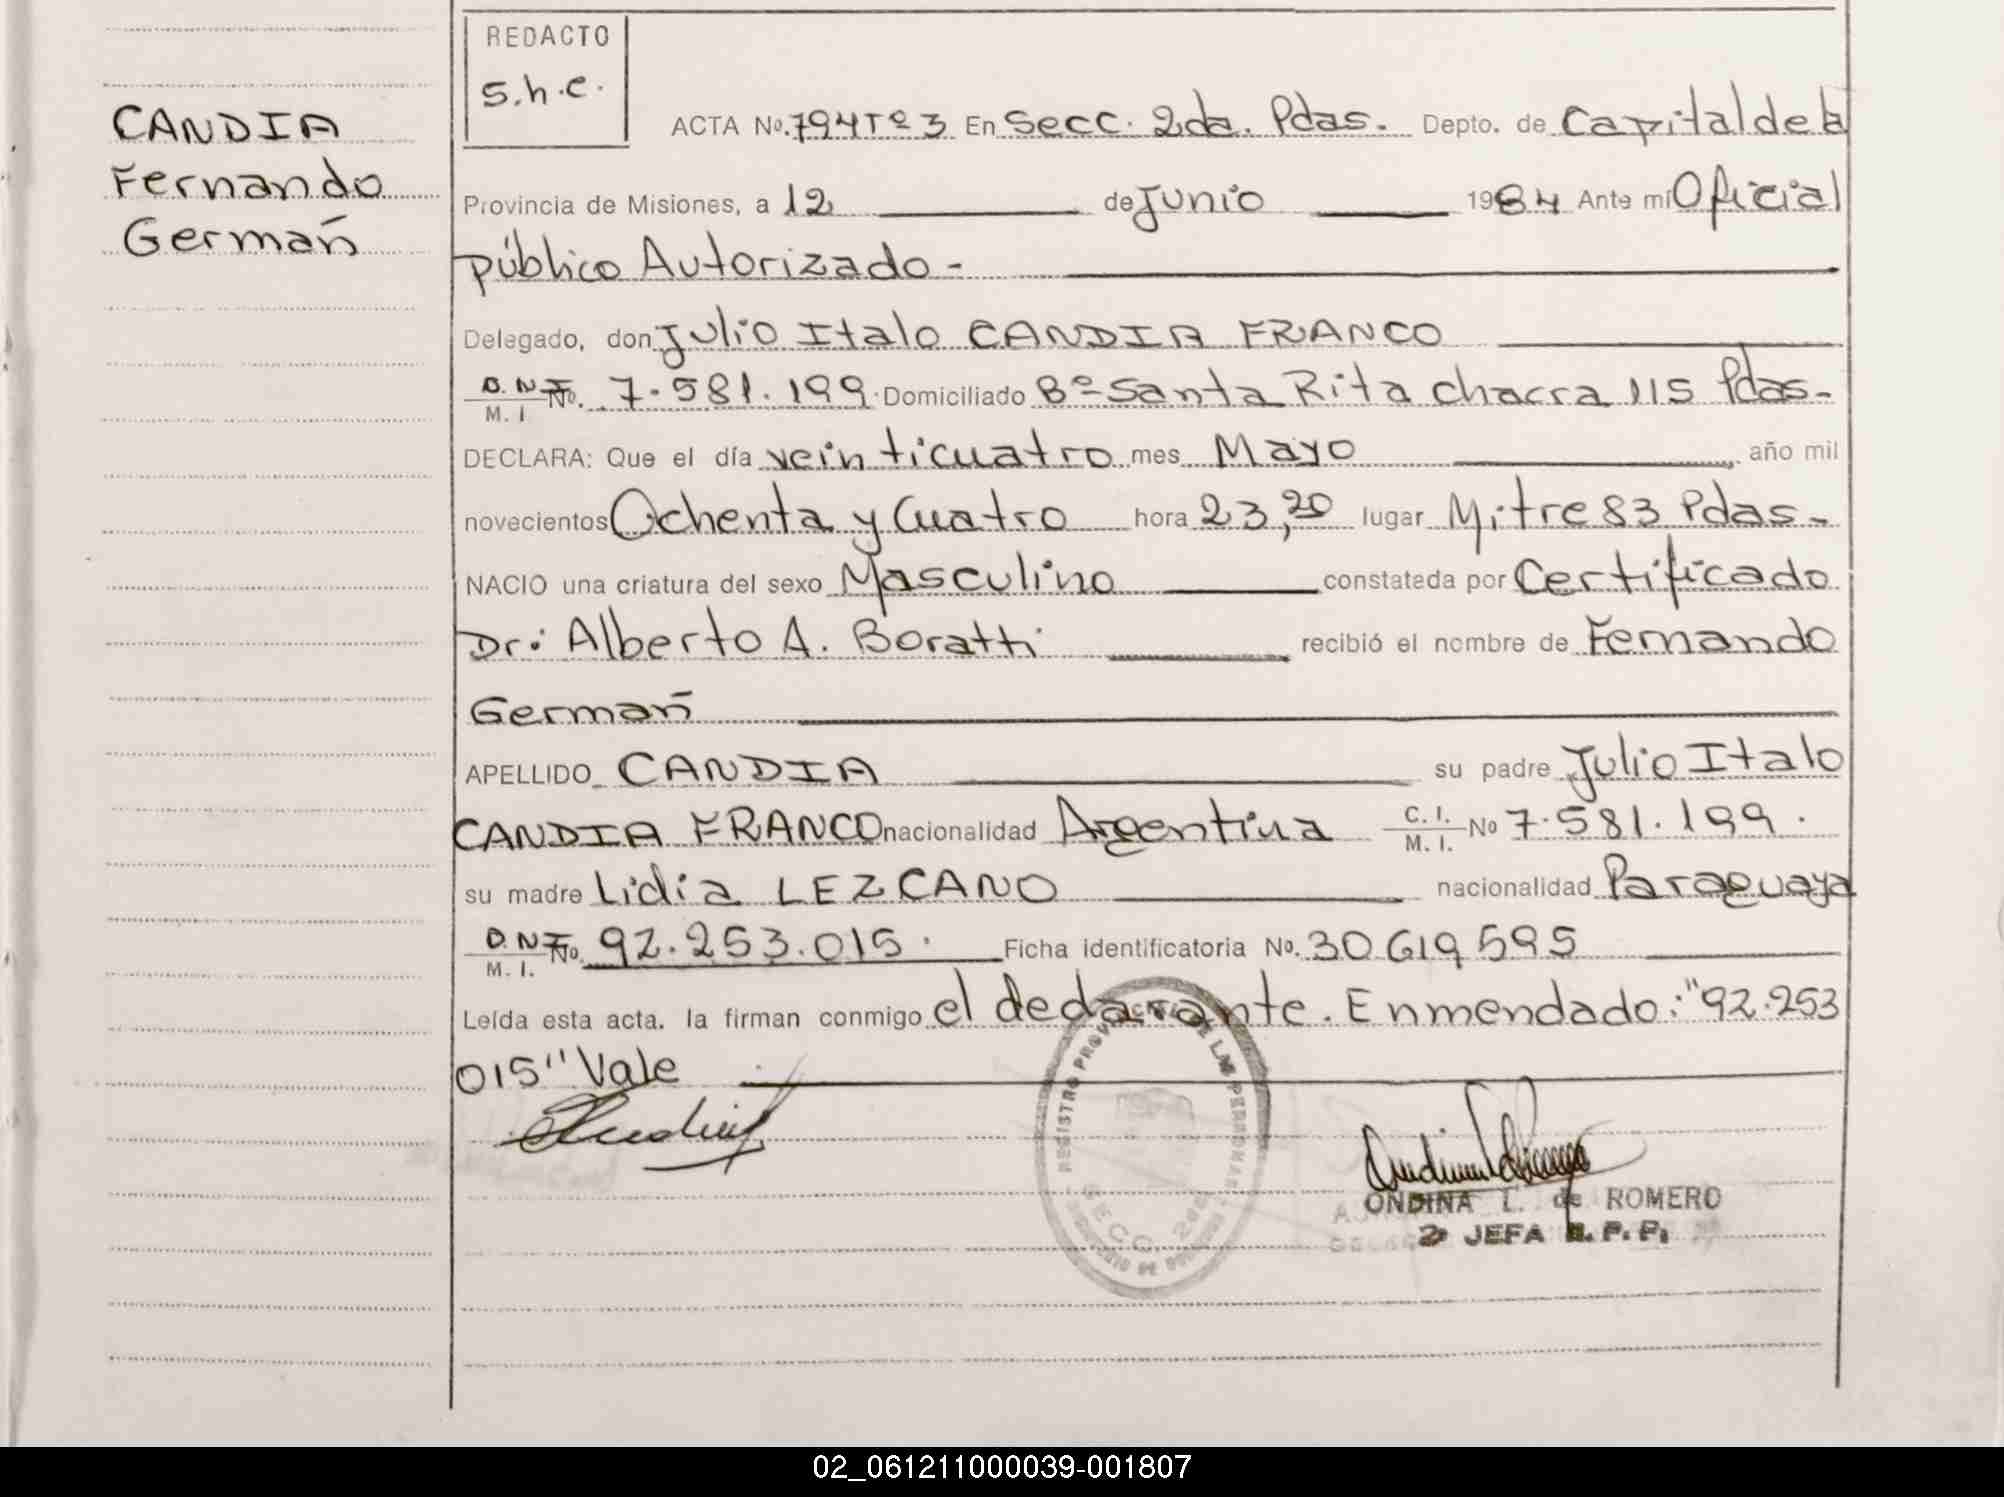 CANDIA
Fernando
Germań
REDACTO
S.h.c.
ACTA No. 794 Tº 3 En Secc. 2da. Pdas. Depto. de Capital de la
Provincia de Misiones, a 12 de Junio 1984 Ante mí Oficial
público Autorizado -
Delegado, don Julio Italo CANDIA FRANCO
D.N.I. M. I. No. 7.581.199. Domiciliado Bº Santa Rita chacra 115 Pdas.
DECLARA: Que el día veinticuatro mes Mayo año mil
novecientos Ochenta y Cuatro hora 23,20 lugar Mitre 83 Pdas.
NACIO una criatura del sexo Masculino constatada por Certificado
Dr: Alberto A. Boratti recibió el nombre de Fernando
Germań
APELLIDO CANDIA su padre Julio Italo
CANDIA FRANCO nacionalidad Argentina C. I. M. I. No 7.581.199.
su madre Lidia LEZCANO nacionalidad Paraguaya
D.N.I. M. I. No. 92.253.015. Ficha identificatoria No. 30619595
Leída esta acta. la firman conmigo el declarante. Enmendado: "92.253
015" Vale
REGISTRO PROVINCIAL DE LAS PERSONAS
SECC. 2da
ONDINA L. de ROMERO
2º JEFA R. P. P.
02_061211000039-001807